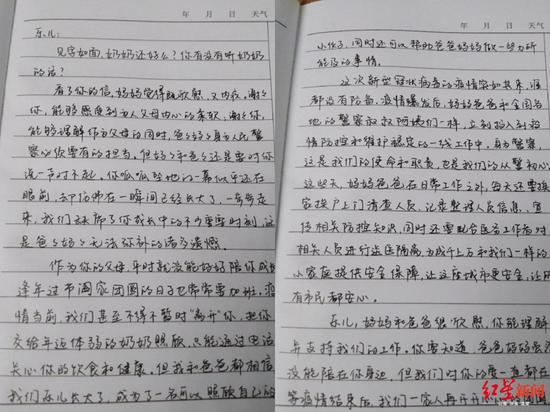 年 月 日 天气
乐儿:
见字如面,奶奶还好么?你有没有听奶奶
的话?
看了你的信,妈妈觉得既欣慰,又内疚,谢谢
你,能够感受到为人父母内心的柔软,谢谢
你,能够理解作为父母的同时,爸爸妈妈身为人民警
察必须要有的担当。但妈妈和爸爸还是要对你
说一句对不起,你呱呱坠地的一幕似乎还在
眼前,却仿佛在一瞬间已经长大了,一步步走
来,我们缺席了你成长中的不少重要时刻,这
是爸爸妈妈无法弥补的诸多遗憾。
作为你的父母,平时就没能好好陪你成长
逢年过节阖家团圆的日子也常常要加班。疫
情当前,我们甚至不得不暂时“离开”你,把你
交给年迈体弱的奶奶照顾,只能通过电话
关心你的饮食和健康。但我和爸爸都相信
我们乐儿长大了,成为了一名可以照顾自己的
年 月 日 天气
小伙子,同时还可以帮助爸爸妈妈做一些力所
能及的事情。
这次新型冠状病毒的疫情突如其来,谁
都没有防备,疫情爆发后,妈妈爸爸和全国各
地的警察叔叔阿姨们一样,立刻投入到疫
情防控和维护稳定的一线工作中,身为警察,
这是我们的使命和职责,也是我们的从警初心
这些天,妈妈爸爸在日常工作之外,每天还要挨
家挨户上门清查人员,记录整理人员信息,宣
传相关防控知识,同时还要配合医务工作者对
相关人员进行送医隔离,为成千上万和我们一样的
小家庭提供安全保障,让这座城市更安全,让所
有市民都安心。
乐儿,妈妈和爸爸很欣慰,你能理解
并支持我们的工作,你要知道,爸爸妈妈虽然
没能陪在你身边,但我们对你的爱一直都在
等疫情结束后,我们一家人再
红星新闻